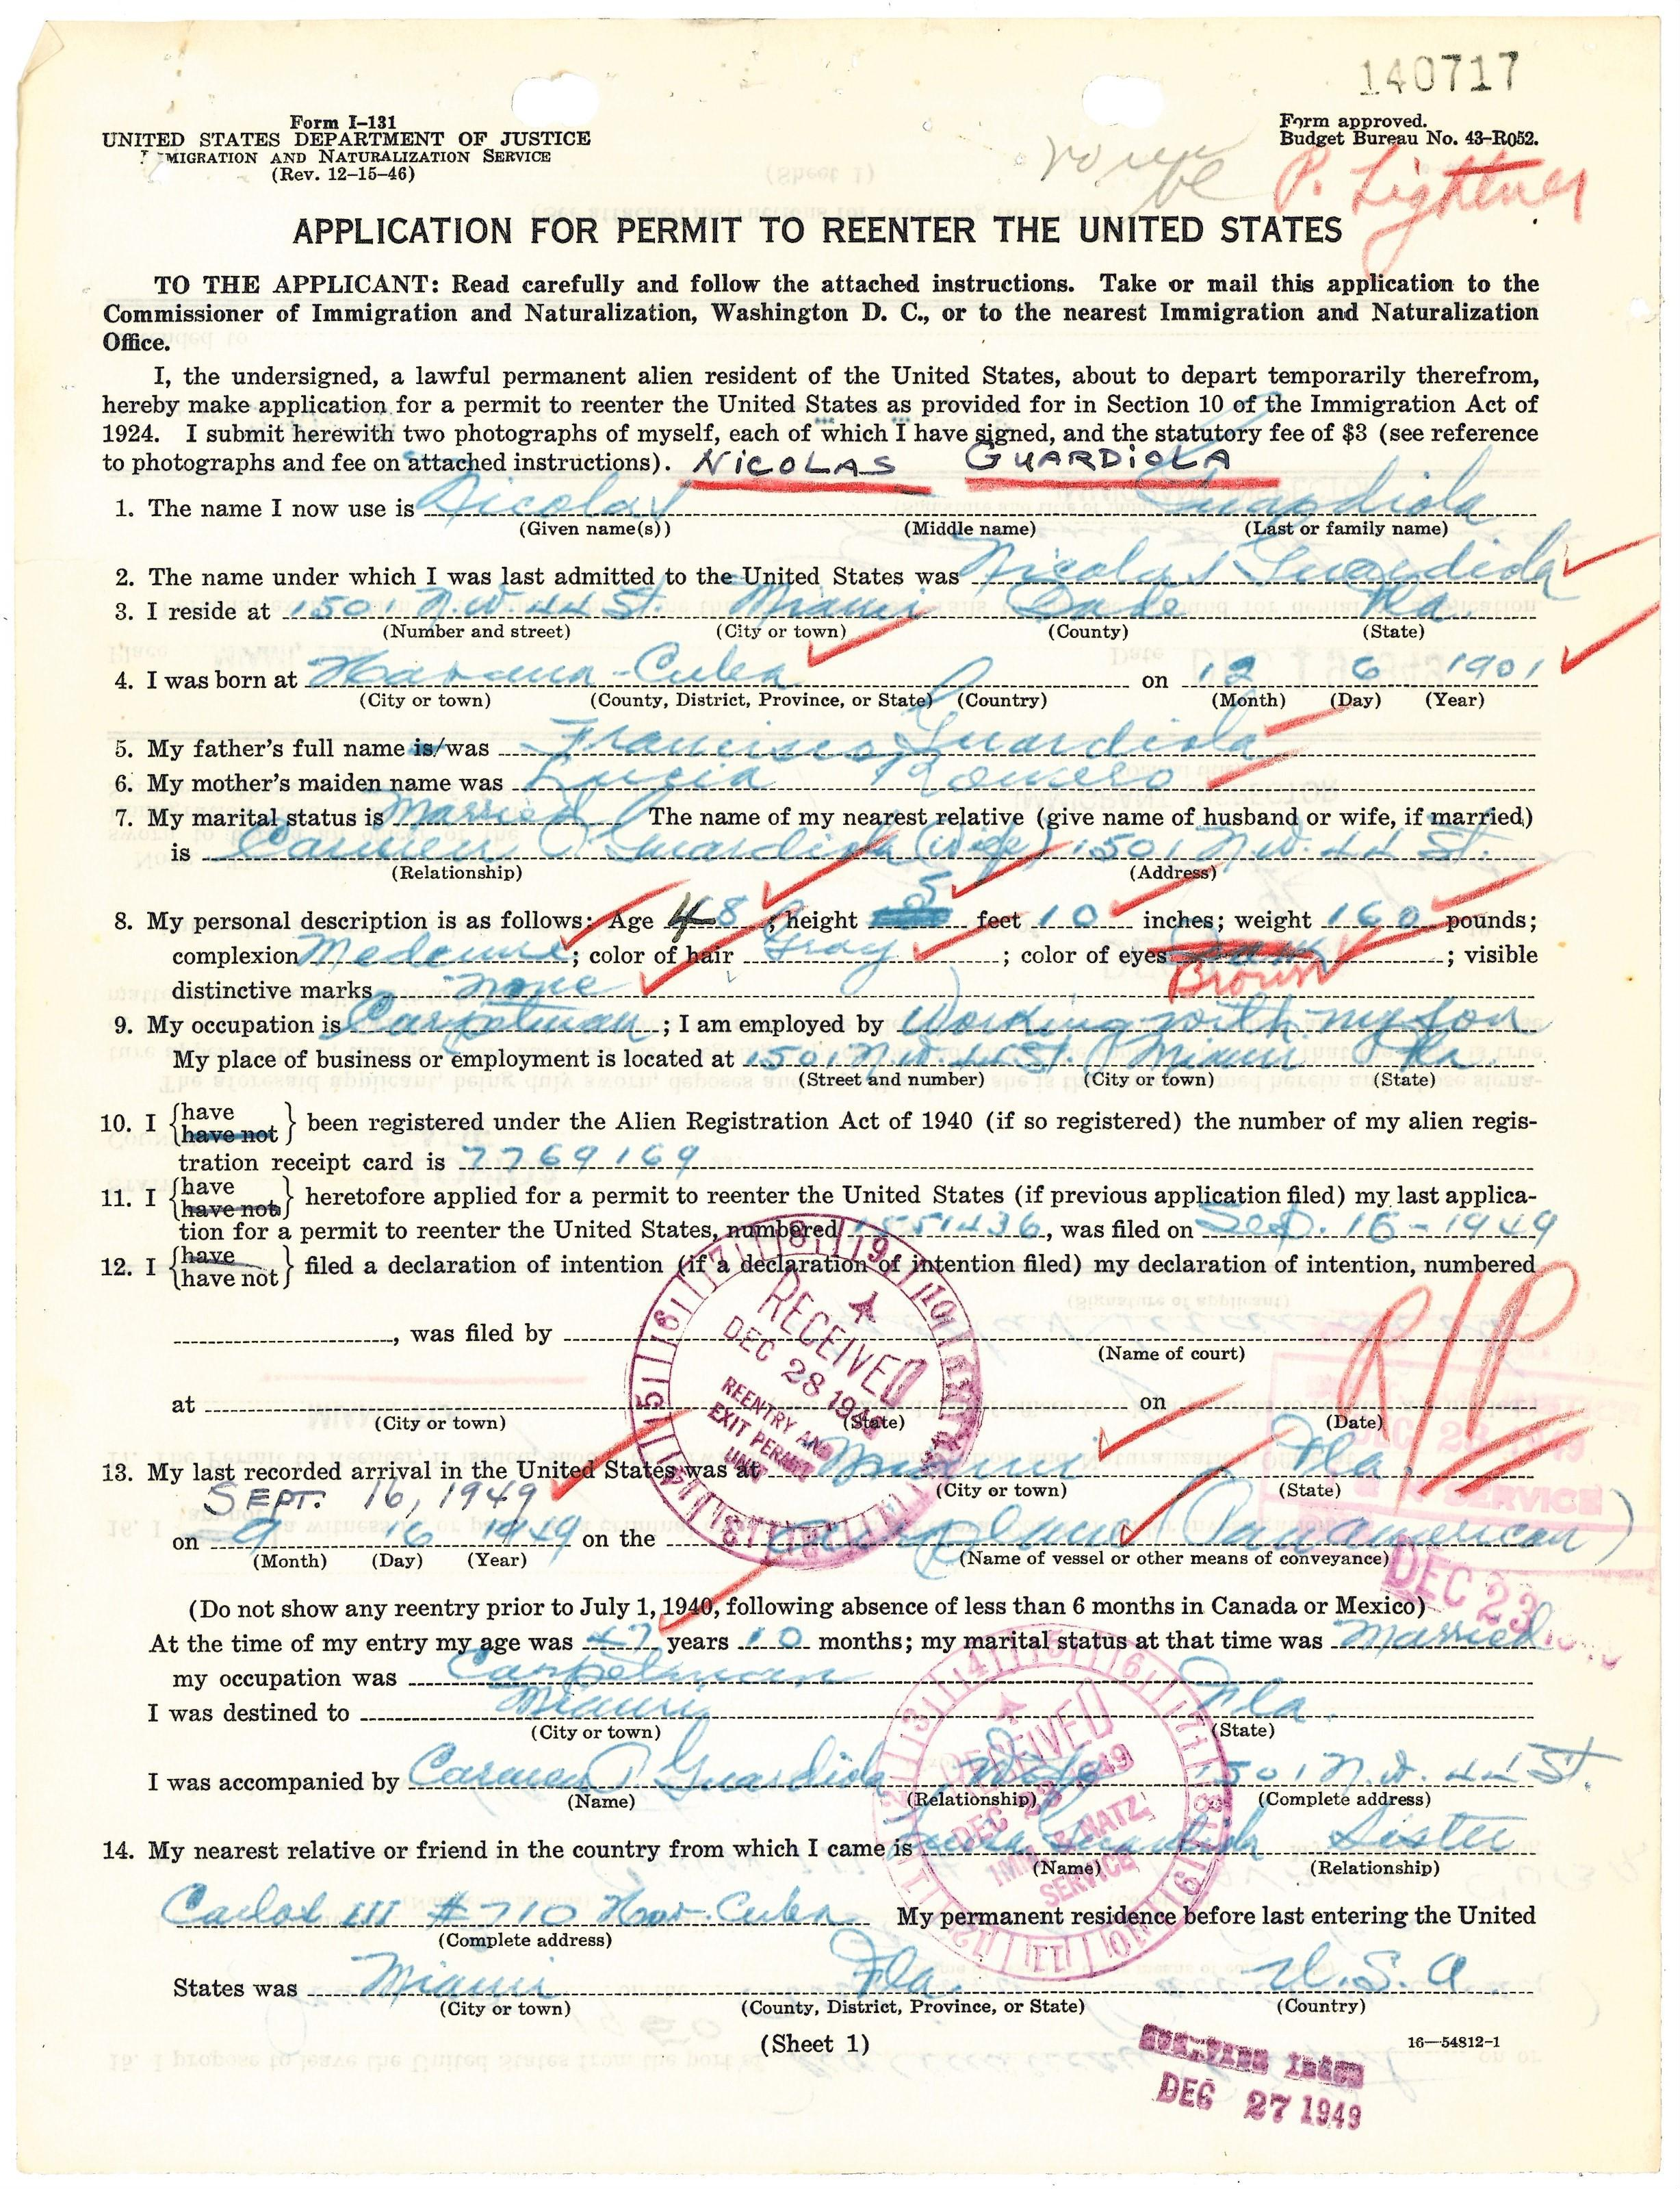 140717
Form I-131
UNITED STATES DEPARTMENT OF JUSTICE
IMMIGRATION AND NATURALIZATION SERVICE
(Rev. 12-15-46)
Form approved.
Budget Bureau No. 43-R052.
P. Lightner
APPLICATION FOR PERMIT TO REENTER THE UNITED STATES
TO THE APPLICANT: Read carefully and follow the attached instructions. Take or mail this application to the
Commissioner of Immigration and Naturalization, Washington D. C., or to the nearest Immigration and Naturalization
Office.
I, the undersigned, a lawful permanent alien resident of the United States, about to depart temporarily therefrom,
hereby make application for a permit to reenter the United States as provided for in Section 10 of the Immigration Act of
1924. I submit herewith two photographs of myself, each of which I have signed, and the statutory fee of $3 (see reference
to photographs and fee on attached instructions). NICOLAS GUARDIOLA
1. The name I now use is Nicolas Guardiola
(Given name(s)) (Middle name) (Last or family name)
2. The name under which I was last admitted to the United States was Nicolas Guardiola
3. I reside at 1501 N.W. 44 St Miami Dade Fla.
(Number and street) (City or town) (County) (State)
4. I was born at Havana - Cuba on 12 6 1901
(City or town) (County, District, Province, or State) (Country) (Month) (Day) (Year)
5. My father's full name is/was Francisco Guardiola
6. My mother's maiden name was Lucia Romero
7. My marital status is Married The name of my nearest relative (give name of husband or wife, if married)
is Carmen P Guardiola (Wife) 1501 N.W. 44 St.
(Relationship) (Address)
8. My personal description is as follows: Age 48; height 5 feet 10 inches; weight 160 pounds;
complexion Medeum; color of hair Gray; color of eyes Brown; visible
distinctive marks none
9. My occupation is Carpetman; I am employed by Working with my son
My place of business or employment is located at 1501 N.W. 44 St. Miami Fla.
(Street and number) (City or town) (State)
10. I {have have not} been registered under the Alien Registration Act of 1940 (if so registered) the number of my alien regis-
tration receipt card is 7769169
11. I {have have not} heretofore applied for a permit to reenter the United States (if previous application filed) my last applica-
tion for a permit to reenter the United States, numbered 1851436, was filed on Sep. 16-1949
12. I {have have not} filed a declaration of intention (if a declaration of intention filed) my declaration of intention, numbered
, was filed by
(Name of court)
R/P
at on
(City or town) (State) (Date)
RECEIVED
DEC 28 1949
REENTRY AND
EXIT PERMIT
UNIT
13. My last recorded arrival in the United States was at Miami Fla.
(City or town) (State)
SEPT. 16, 1949
on 9 16 1949 on the Air plane (Pan american)
(Month) (Day) (Year) (Name of vessel or other means of conveyance)
DEC 23
(Do not show any reentry prior to July 1, 1940, following absence of less than 6 months in Canada or Mexico)
At the time of my entry my age was 47 years 10 months; my marital status at that time was Married
my occupation was Carpetman
I was destined to Miami Fla.
(City or town) (State)
I was accompanied by Carmen P Guardiola Wife 1501 N.W. 44 St.
(Name) (Relationship) (Complete address)
RECEIVED
DEC 23 1949
IMM. & NATZ.
SERVICE
14. My nearest relative or friend in the country from which I came is Guardiola Sister
(Name) (Relationship)
Carlos III #710 Hav. Cuba My permanent residence before last entering the United
(Complete address)
States was Miami Fla. U.S.A
(City or town) (County, District, Province, or State) (Country)
(Sheet 1)
16—54812-1
DEC 27 1949